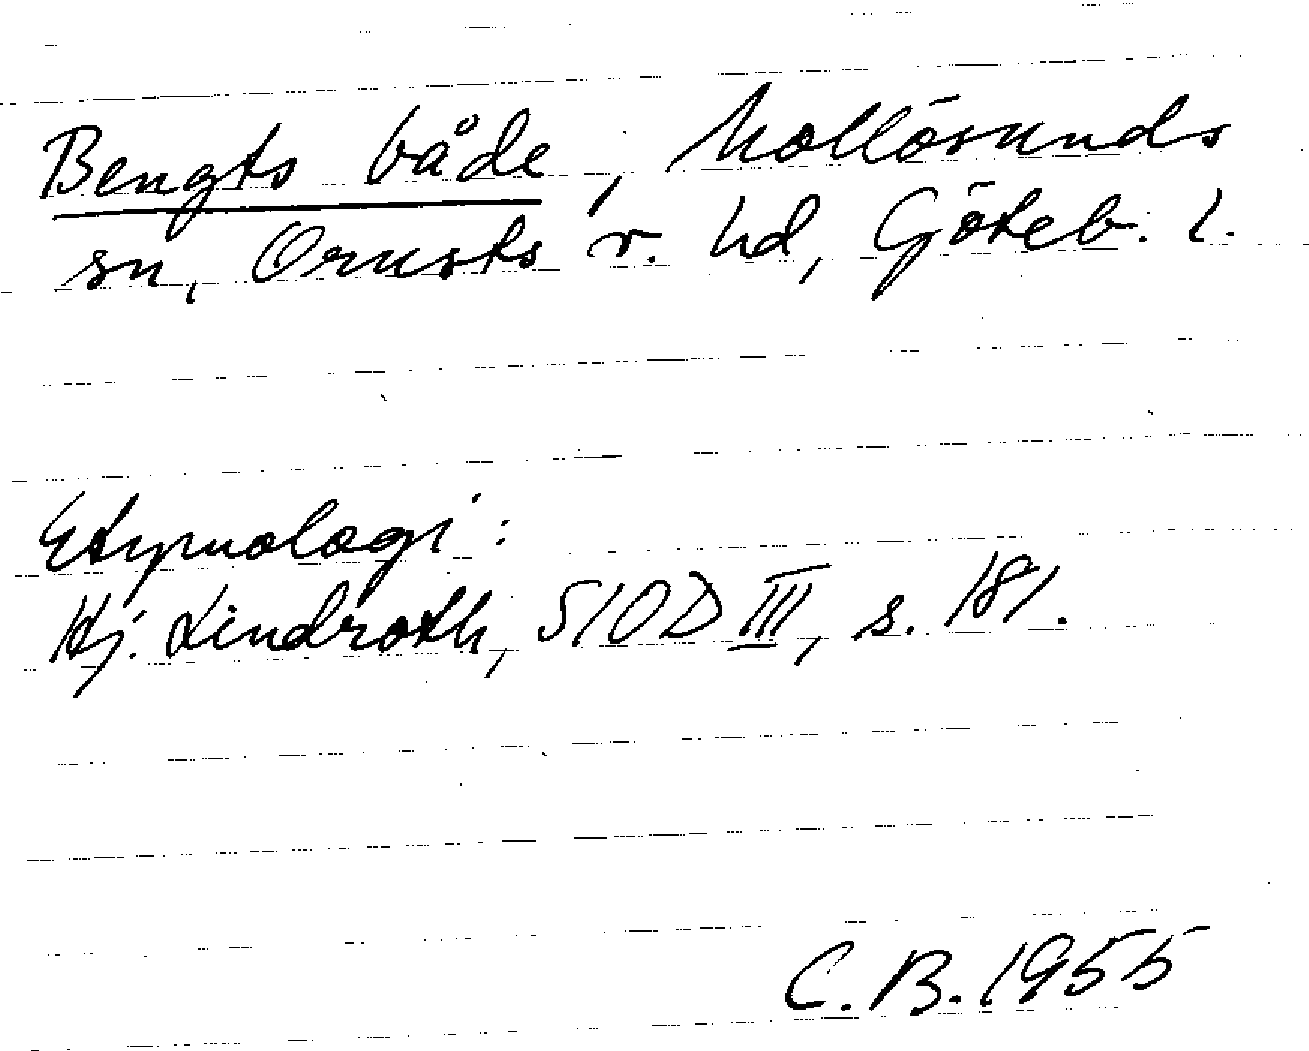 Bengts både, Mollösunds
sn, Orusts v. hd, Göteb. l.
Etymologi:
Hj. Lindroth, SIOD III, s. 181.
C. B. 1955